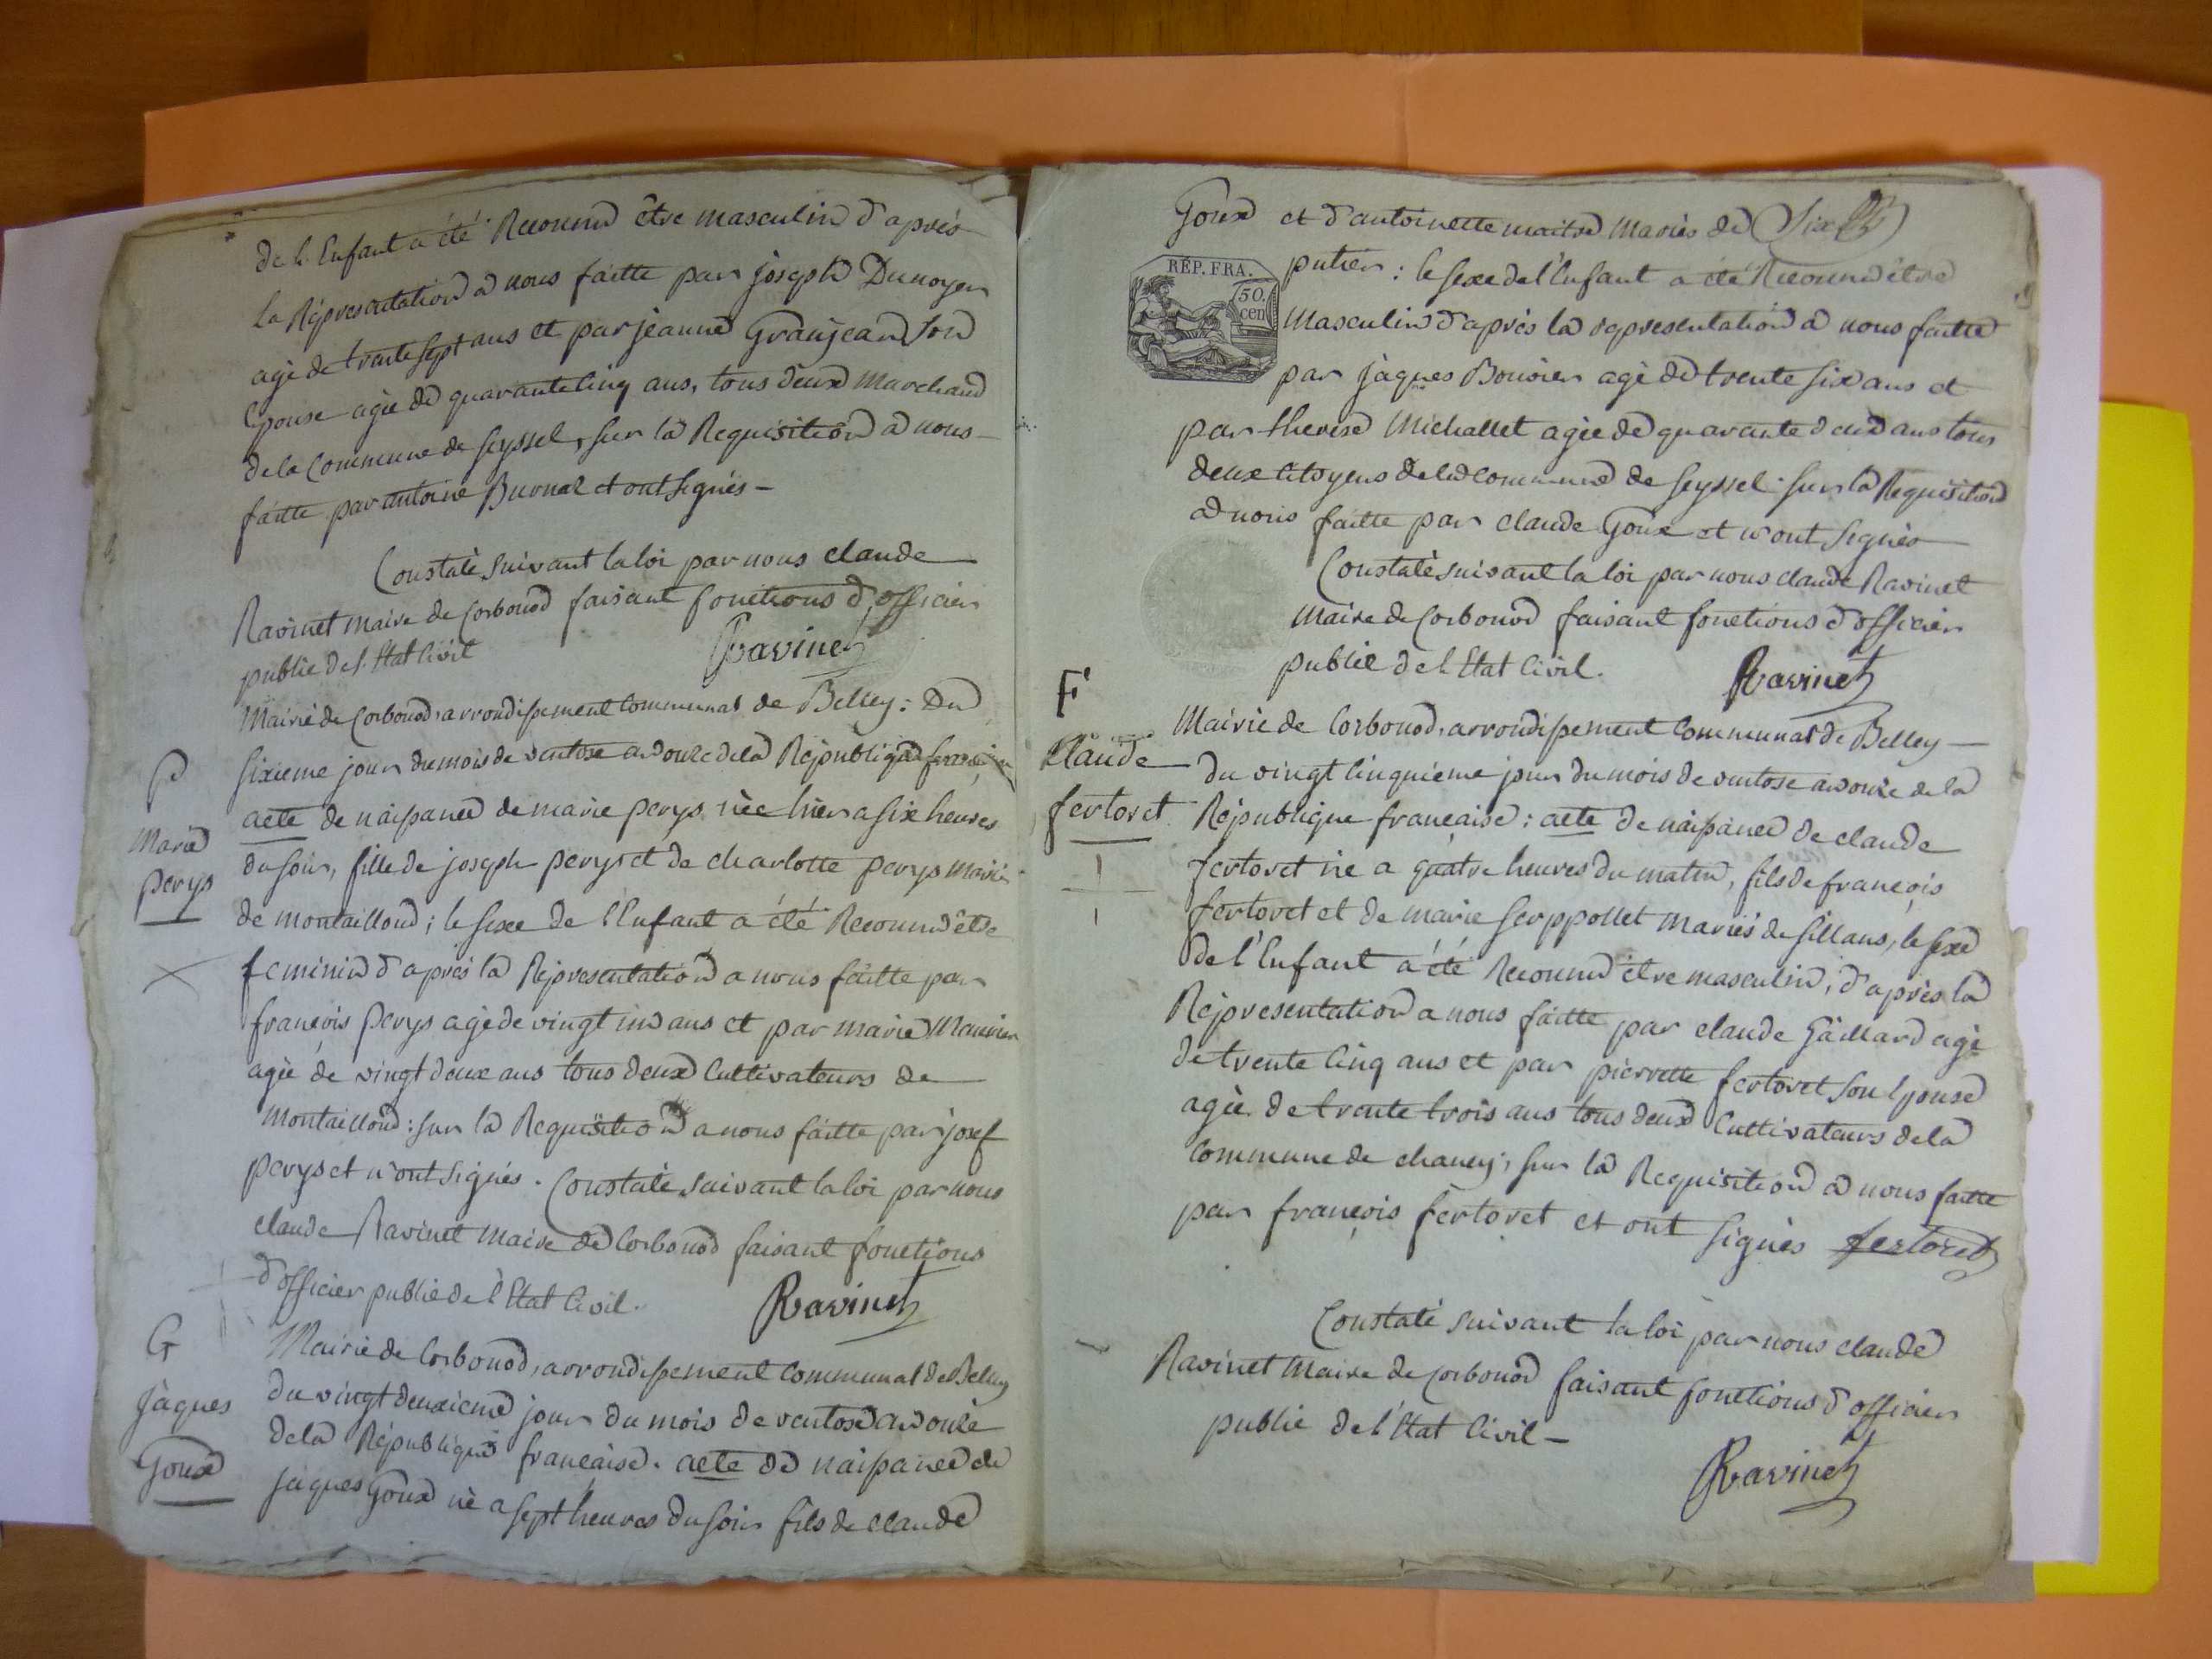 de l'Enfant a été Reconnud être masculin d'après
la Répresentation a nous faitte par joseph Dunoyer
agè de trente sept ans et par jeanne Granjean son
Epouse agèe de quarante cinq ans, tous deux Marchand
de la Commune de Seyssel, sur la Requisition a nous
faitte par antoine Burnat et ont signés -
Constaté suivant la loi par nous claude
Ravinet maire de Corbonod faisant fonctions d'officier
public de l'Etat Civil
Ravinet
Mairie de Corbonod, arrondissement communal de Belley : Du
P
sixieme jour du mois de ventose an douze de la République française
acte de naissance de marie perys née hier a six heures
Marie
du soir, fille de joseph perys et de charlotte perys mariés
perys
de montailloud ; le sexe de l'Enfant a été Reconnud être
feminin d'après la Répresentation a nous faitte par
françois perys agè de vingt un ans et par marie
agèe de vingt deux ans tous deux Cultivateurs de
Montailloud : sur la Requisition a nous faitte par josef
perys et n'ont signés. Constaté suivant la loi par nous
claude Ravinet Maire de Corbonod faisant fonctions
d'officier public de l'Etat Civil.
Ravinet
G
Mairie de Corbonod, arrondissement communal de Belley
jàques
du vingt deuxieme jour du mois de ventose an douze
Goux
de la République française. acte de naissance de
jàques Goux né a sept heures du soir fils de claude
Goux et d'antoinette maitre Mariés de
Six
RÉP. FRA.
50.
cen
putier : le sexe de l'Enfant a été Reconnud être
Masculin d'après la représentation a nous faitte
par jàques Bouvier agè de trente six ans et
par therese Michallet agèe de quarante deux ans tous
deux citoyens de la commune de Seyssel. sur la Requisition
a nous faitte par claude Goux et n'ont signés
Constaté suivant la loi par nous claude Ravinet
Maire de Corbonod faisant fonctions d'officier
public de l'Etat Civil.
Ravinet
F
Mairie de Corbonod, arrondissement communal de Belley
Claude
du vingt cinquieme jour du mois de ventose an douze de la
fertoret
République française : acte de naissance de claude
fertoret né a quatre heures du matin, fils de françois
fertoret et de marie serppollet Mariés de sillans, le sexe
de l'Enfant a été Reconnud être masculin, d'après la
Répresentation a nous faitte par claude Gaillard agè
de trente cinq ans et par pierrette fertoret son Epouse
agèe de trente trois ans tous deux Cultivateurs de la
commune de chaney, sur la Requisition a nous faitte
par françois fertoret et ont signés fertoret
Constaté suivant la loi par nous claude
Ravinet Maire de Corbonod faisant fonctions d'officier
public de l'Etat Civil -
Ravinet